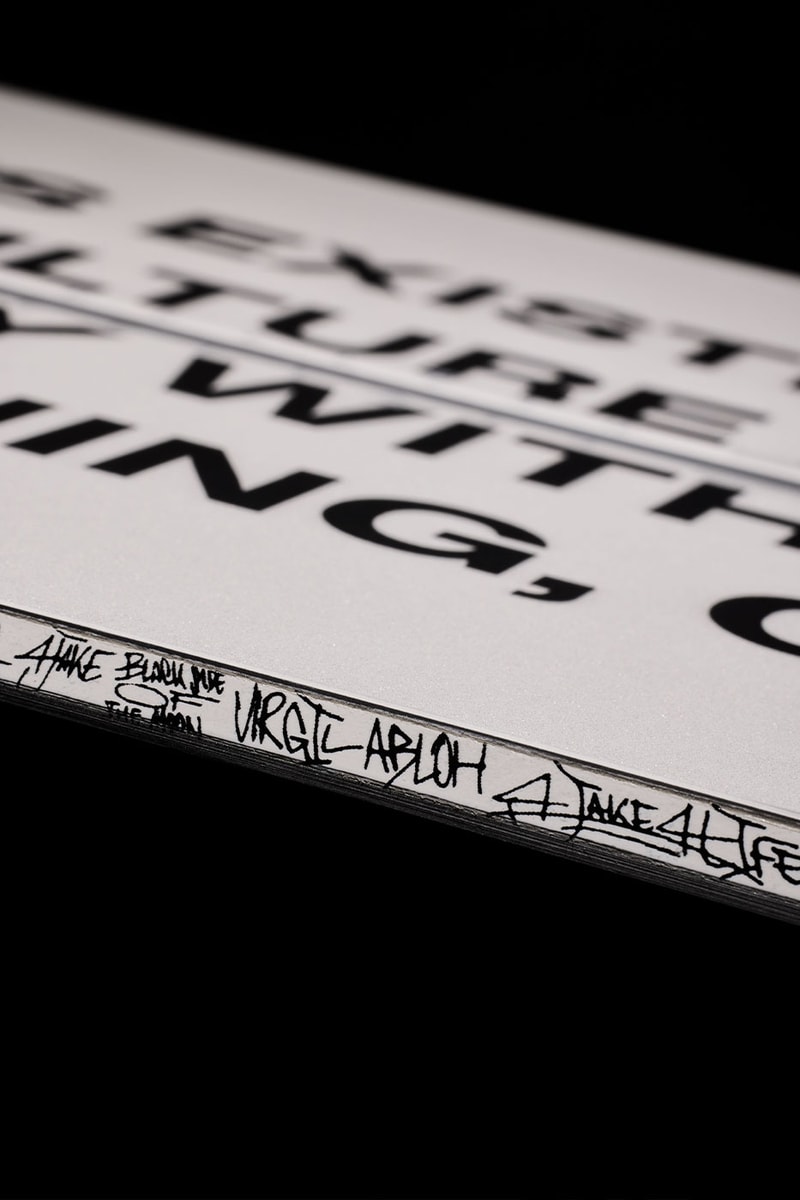 S EXIST
ULTURE
Y WITH
HING,
4TAKE BLACK SIDE OF THE MOON VIRGIL ABLOH 4TAKE4LIFE